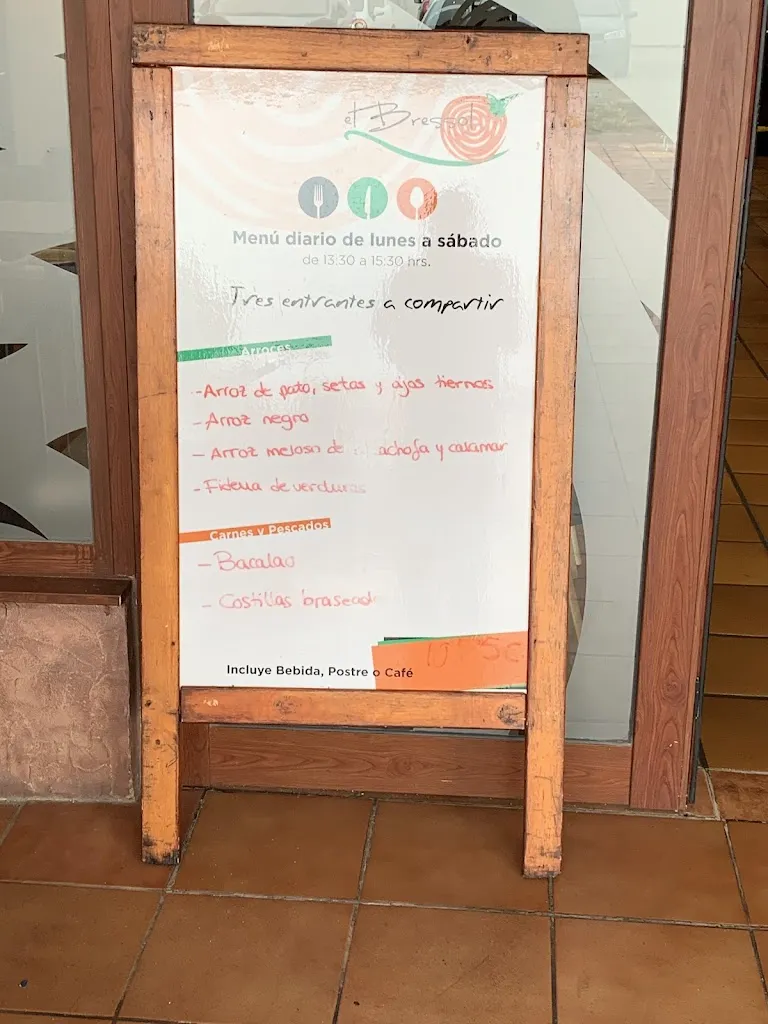 el Bressol
Menú diario de lunes a sábado
de 13:30 a 15:30 hrs.
Tres entrantes a compartir
Arroces
-Arroz de pato, setas y ajos tiernos
-Arroz negro
-Arroz meloso de achofa y calamar
-Fideua de verduras
Carnes y Pescados
-Bacalao
-Costillas brasead
Incluye Bebida, Postre o Café